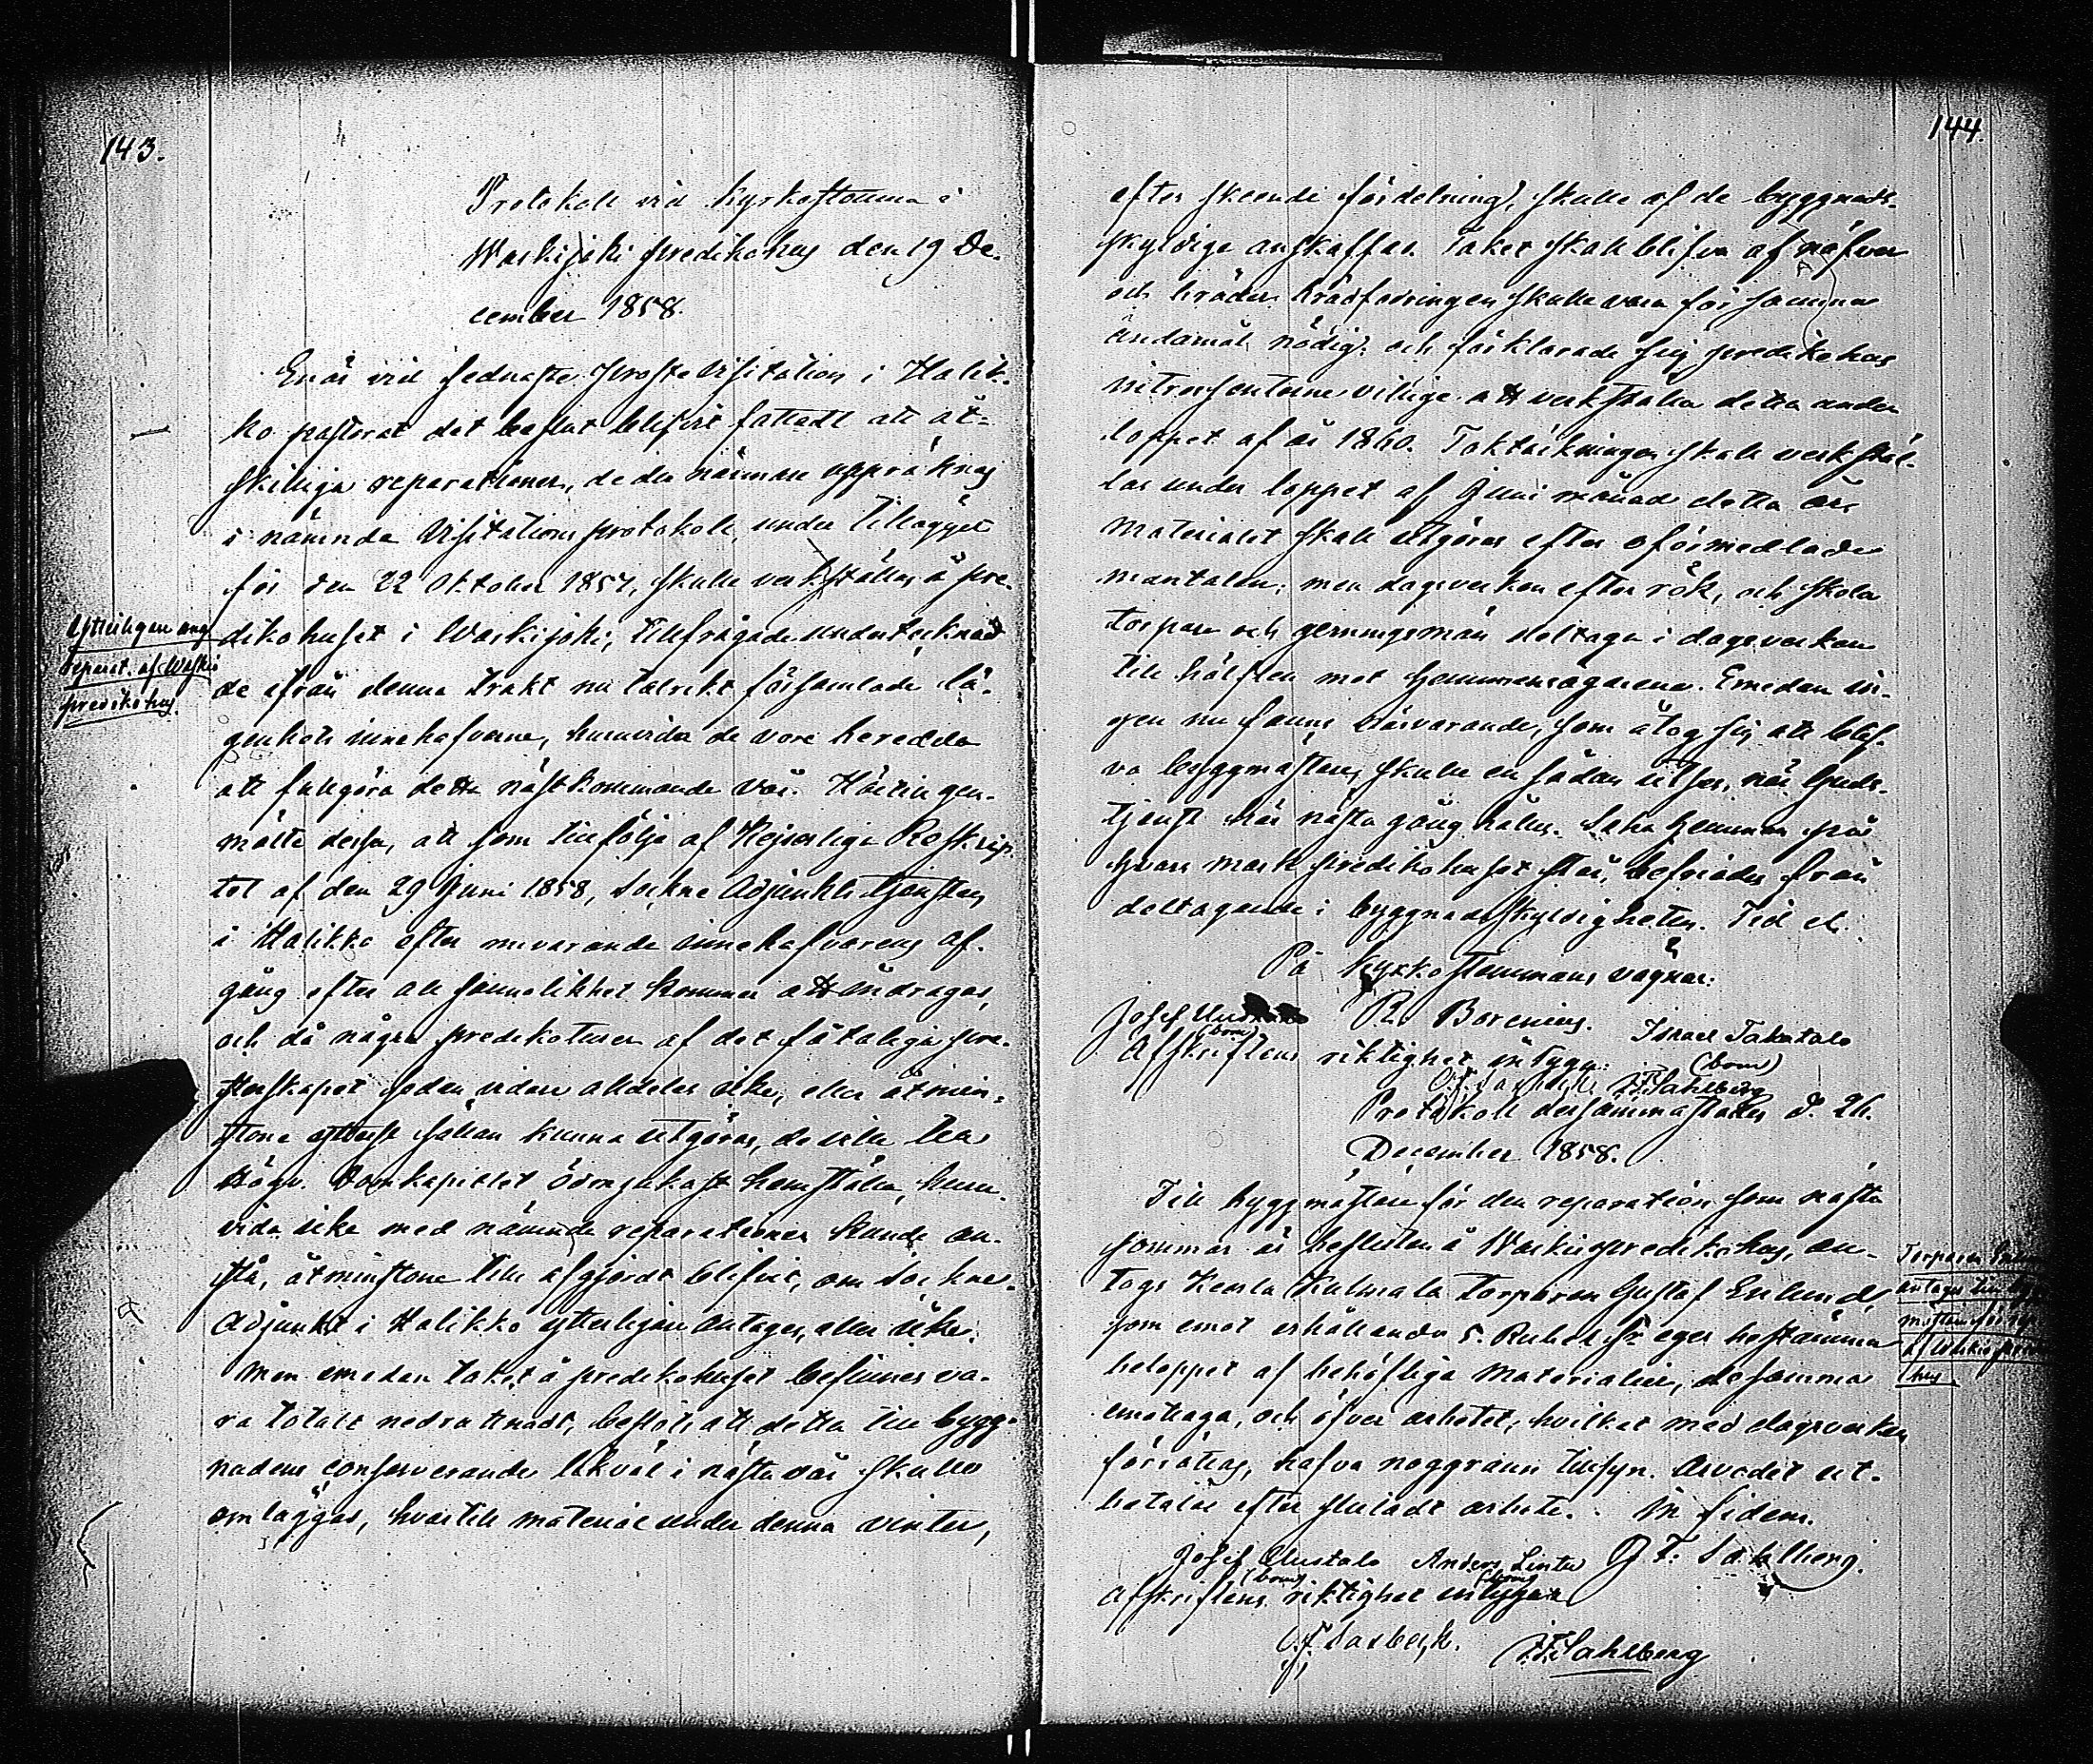 143.
Protokoll vid Kyrkostämma i
Waskijoki predikohus den 19 De-
cember 1858.
Enär vid sednaste Prosta Visitation i Halik-
ko pastorat det beslut blifvit fattadt att åt-
skilliga reparationer, de der närmare uppräknas
i nämnda Visitations protokoll, under tillägget
för den 22 Oktober 1857, skulle verkställas å pre-
dikohuset i Waskijoki; tillfrågade undertecknad
Ytterligare ang.
reparat. af Waskio
predikohus.
de ifrån denna trakt nu talrikt församlade lä-
genhets innehafvarne, huruvida de vore beredda
att fullgöra detta nästkommande vår. Härtill gen-
mälte dessa, att som till följe af Kejserliga Reskrip-
tet af den 29 Juni 1858, Sockne Adjunkts tjensten
i Halikko efter nuvarande innehafvarens af-
gång efter all sannolikhet kommer att indragas,
och då några predikoturer af det fåtaliga pre-
sterskapet sedan vidare alldeles icke, eller åtmin-
stone ytterst sällan kunna utgöras, de ville hos
Högv. Domkapitlet ödmjukast hemställa, huru-
vida icke med nämnde reparationer kunde an-
stå, åtminstone tills afgjordt blifvit, om Sockne-
Adjunkt i Halikko ytterligare antages, eller icke.
Men emedan taket å predikohuset befinnes va-
ra totalt nedruttnadt, beslöts att detta till bygg-
nadens conserverande likväl i nästa vår skulle
omläggas, hvartill material under denna vinter,
144.
efter skeende fördelning, skulle af de byggnads-
skyldige anskaffas. Taket skall blifva af näfver
och bräder. Brädfodringen skulle vara för samma
ändamål nödig; och förklarade sig predikohus
intressenterne villige att verkställa detta under
loppet af år 1860. Taktäckningen skall verkstäl-
las under loppet af Juni månad detta år.
Materialet skall utgöras efter oförmedlade
mantalen; men dagsverken efter rök, och skola
torpare och gerningsmän deltaga i dagsverken
till hälften mot hemmansägarena. Emedan in-
gen nu fanns närvarande, som åtog sig att blif-
va byggmästare, skulle en sådan utses, när Guds-
tjenst här nästa gång hålles. Saha hemman på
hvars mark predikohuset står, befriades från
deltagande i byggnadsskyldigheten. Tid et.
På Kyrkostämmans vägnar:
R. Borenius.
Josef Uustalo
(bom)
Israel Takatalo
(bom)
Afskriftens riktighet intyga:
F. F. Sahlberg
Protokoll dersammastädes d. 26.
December 1858.
Till byggmästare för den reparation som nästa
sommar är besluten å Waskio predikohus, an-
togs Torparen Gustaf Enlund,
Torparen Enlund
antages till bygg-
mästare för rep.
af Waskio predik
hus
som emot erhållande 5. Rubel Sr eger bestämma
beloppet af behöfliga materialier, desamma
emottaga, och öfver arbetet, hvilket med dagsverken
förrättas, hafva noggrann tillsyn. Arvodet ut-
betalas efter slutadt arbete. In fidem.
F. F. Sahlberg.
Josef Uustalo
(bom)
Anders Lintu
(bom)
Afskriftens riktighet intyga
F. F. Sahlberg